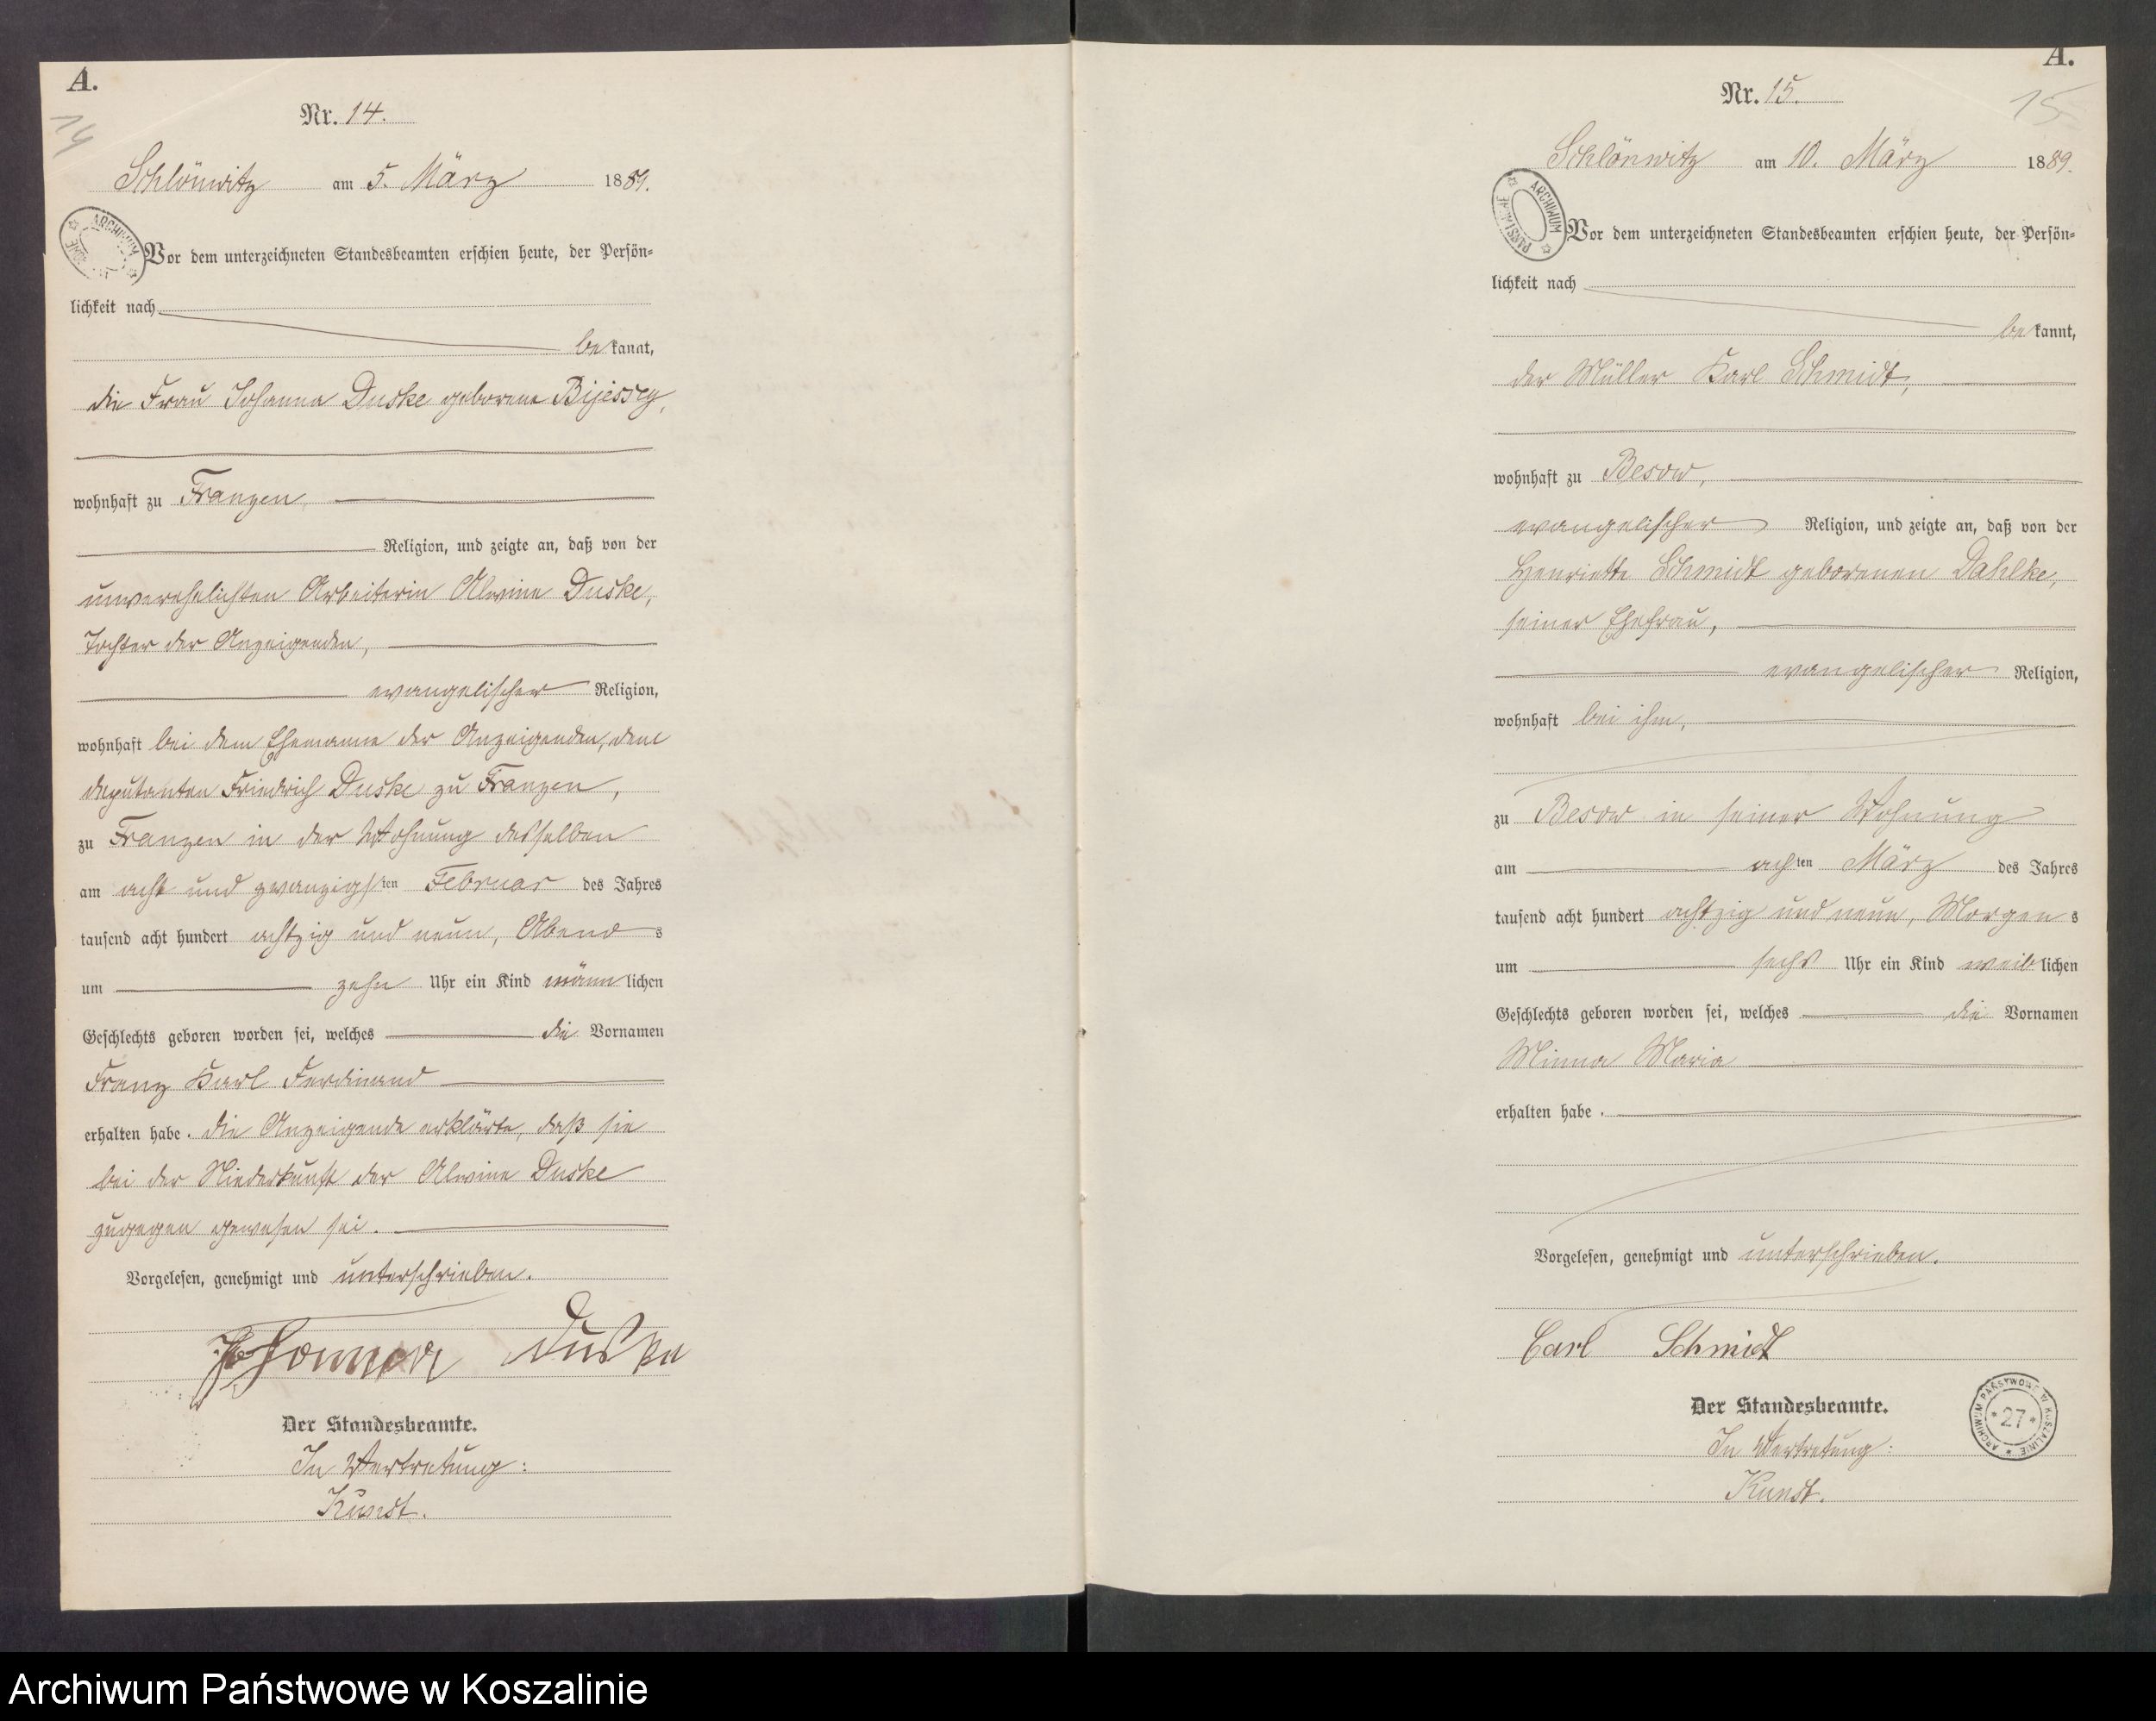 A.
14
Nr. 14.
Schlönwitz am 5. März 1889.
ARCHIWUM
Vor dem unterzeichneten Standesbeamten erschien heute, der Persön=
lichkeit nach
bekannt,
die Frau Johanna Duske geborene Bijessey,
wohnhaft zu Franzen,
Religion, und zeigte an, daß von der
unverehelichten Arbeiterin Alwine Duske,
Tochter der Anzeigenden,
evangelischer Religion,
wohnhaft bei dem Ehemanne der Anzeigenden, dem
Deputanten Friedrich Duske zu Franzen,
zu Franzen in der Wohnung desselben
am acht und zwanzigsten Februar des Jahres
tausend acht hundert achtzig und neun, Abends
um zehn Uhr ein Kind männlichen
Geschlechts geboren worden sei, welches die Vornamen
Franz Karl Ferdinand
erhalten habe. Die Anzeigende erklärte, daß sie
bei der Niederkunft der Alwine Duske
zugegen gewesen sei.
Vorgelesen, genehmigt und unterschrieben.
Johanna Duske
Der Standesbeamte.
In Vertretung:
Kundt.
A.
15
Nr. 15.
Schlönwitz am 10. März 1889.
ARCHIWUM PAŃSTWOWE
Vor dem unterzeichneten Standesbeamten erschien heute, der Persön=
lichkeit nach
bekannt,
der Müller Karl Schmidt,
wohnhaft zu Besow,
evangelischer Religion, und zeigte an, daß von der
Henriette Schmidt geborenen Dahlke,
seiner Ehefrau,
evangelischer Religion,
wohnhaft bei ihm,
zu Besow in seiner Wohnung
am achten März des Jahres
tausend acht hundert achtzig und neun, Morgens
um sechs Uhr ein Kind weiblichen
Geschlechts geboren worden sei, welches die Vornamen
Minna Maria
erhalten habe.
Vorgelesen, genehmigt und unterschrieben.
Carl Schmidt
Der Standesbeamte.
ARCHIWUM PAŃSTWOWE W KOSZALINIE * 27 *
In Vertretung:
Kundt.
Archiwum Państwowe w Koszalinie